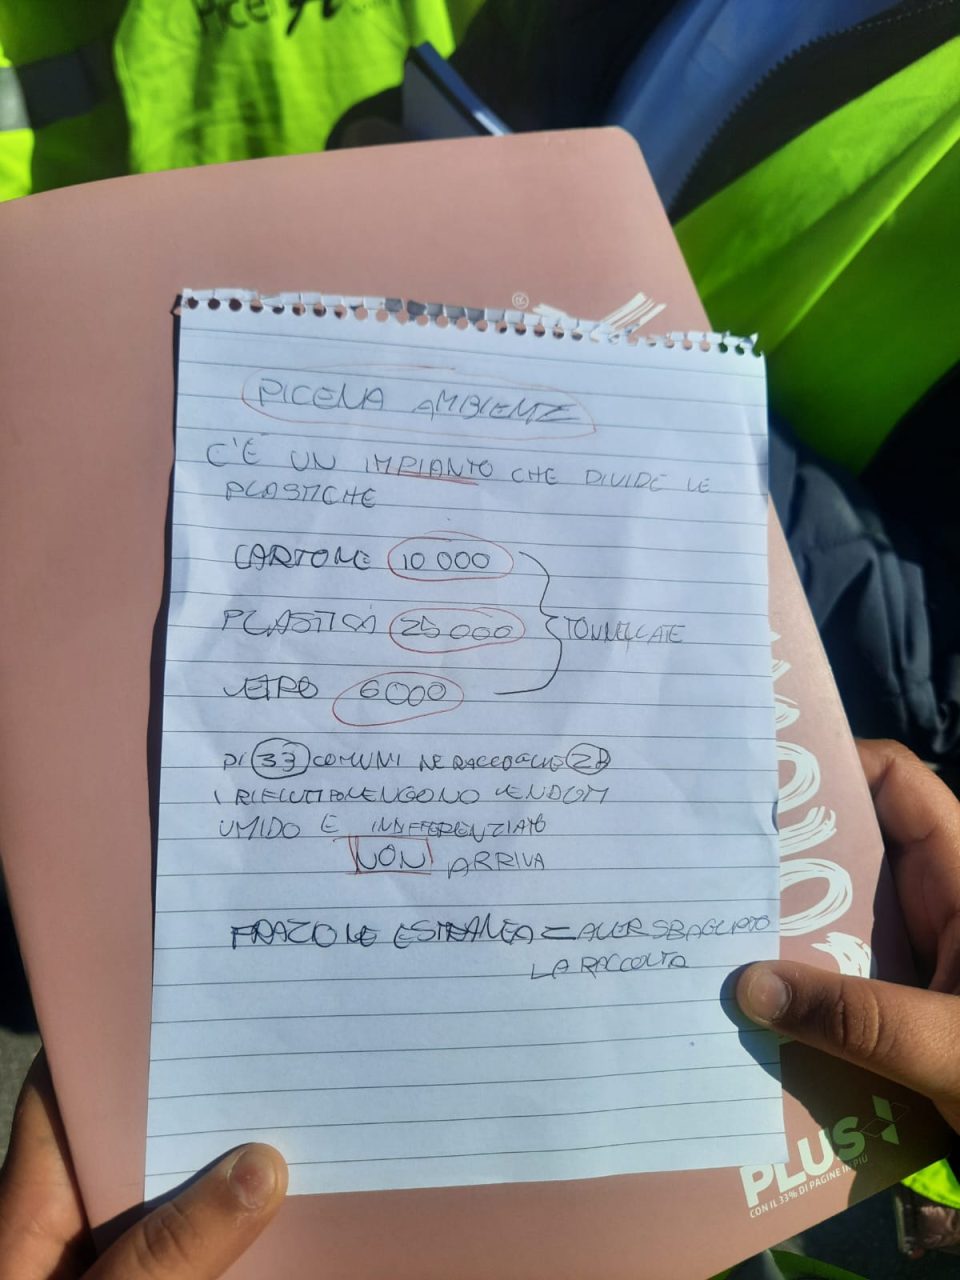 Picen
PICENA AMBIENTE
C'È UN IMPIANTO CHE DIVIDE LE
PLASTICHE
CARTONE 10 000
PLASTICA 25 000 TONNELLATE
VETRO 6000
DI 33 COMUNI NE RACCOGLIE
I RIFIUTI VENGONO
UMIDO E
NON ARRIVA
FRAZIONE ESTRANEA = AVER SBAGLIATO
LA RACCOLTA
PLUS
CON IL 33% DI PAGINE IN PIÙ